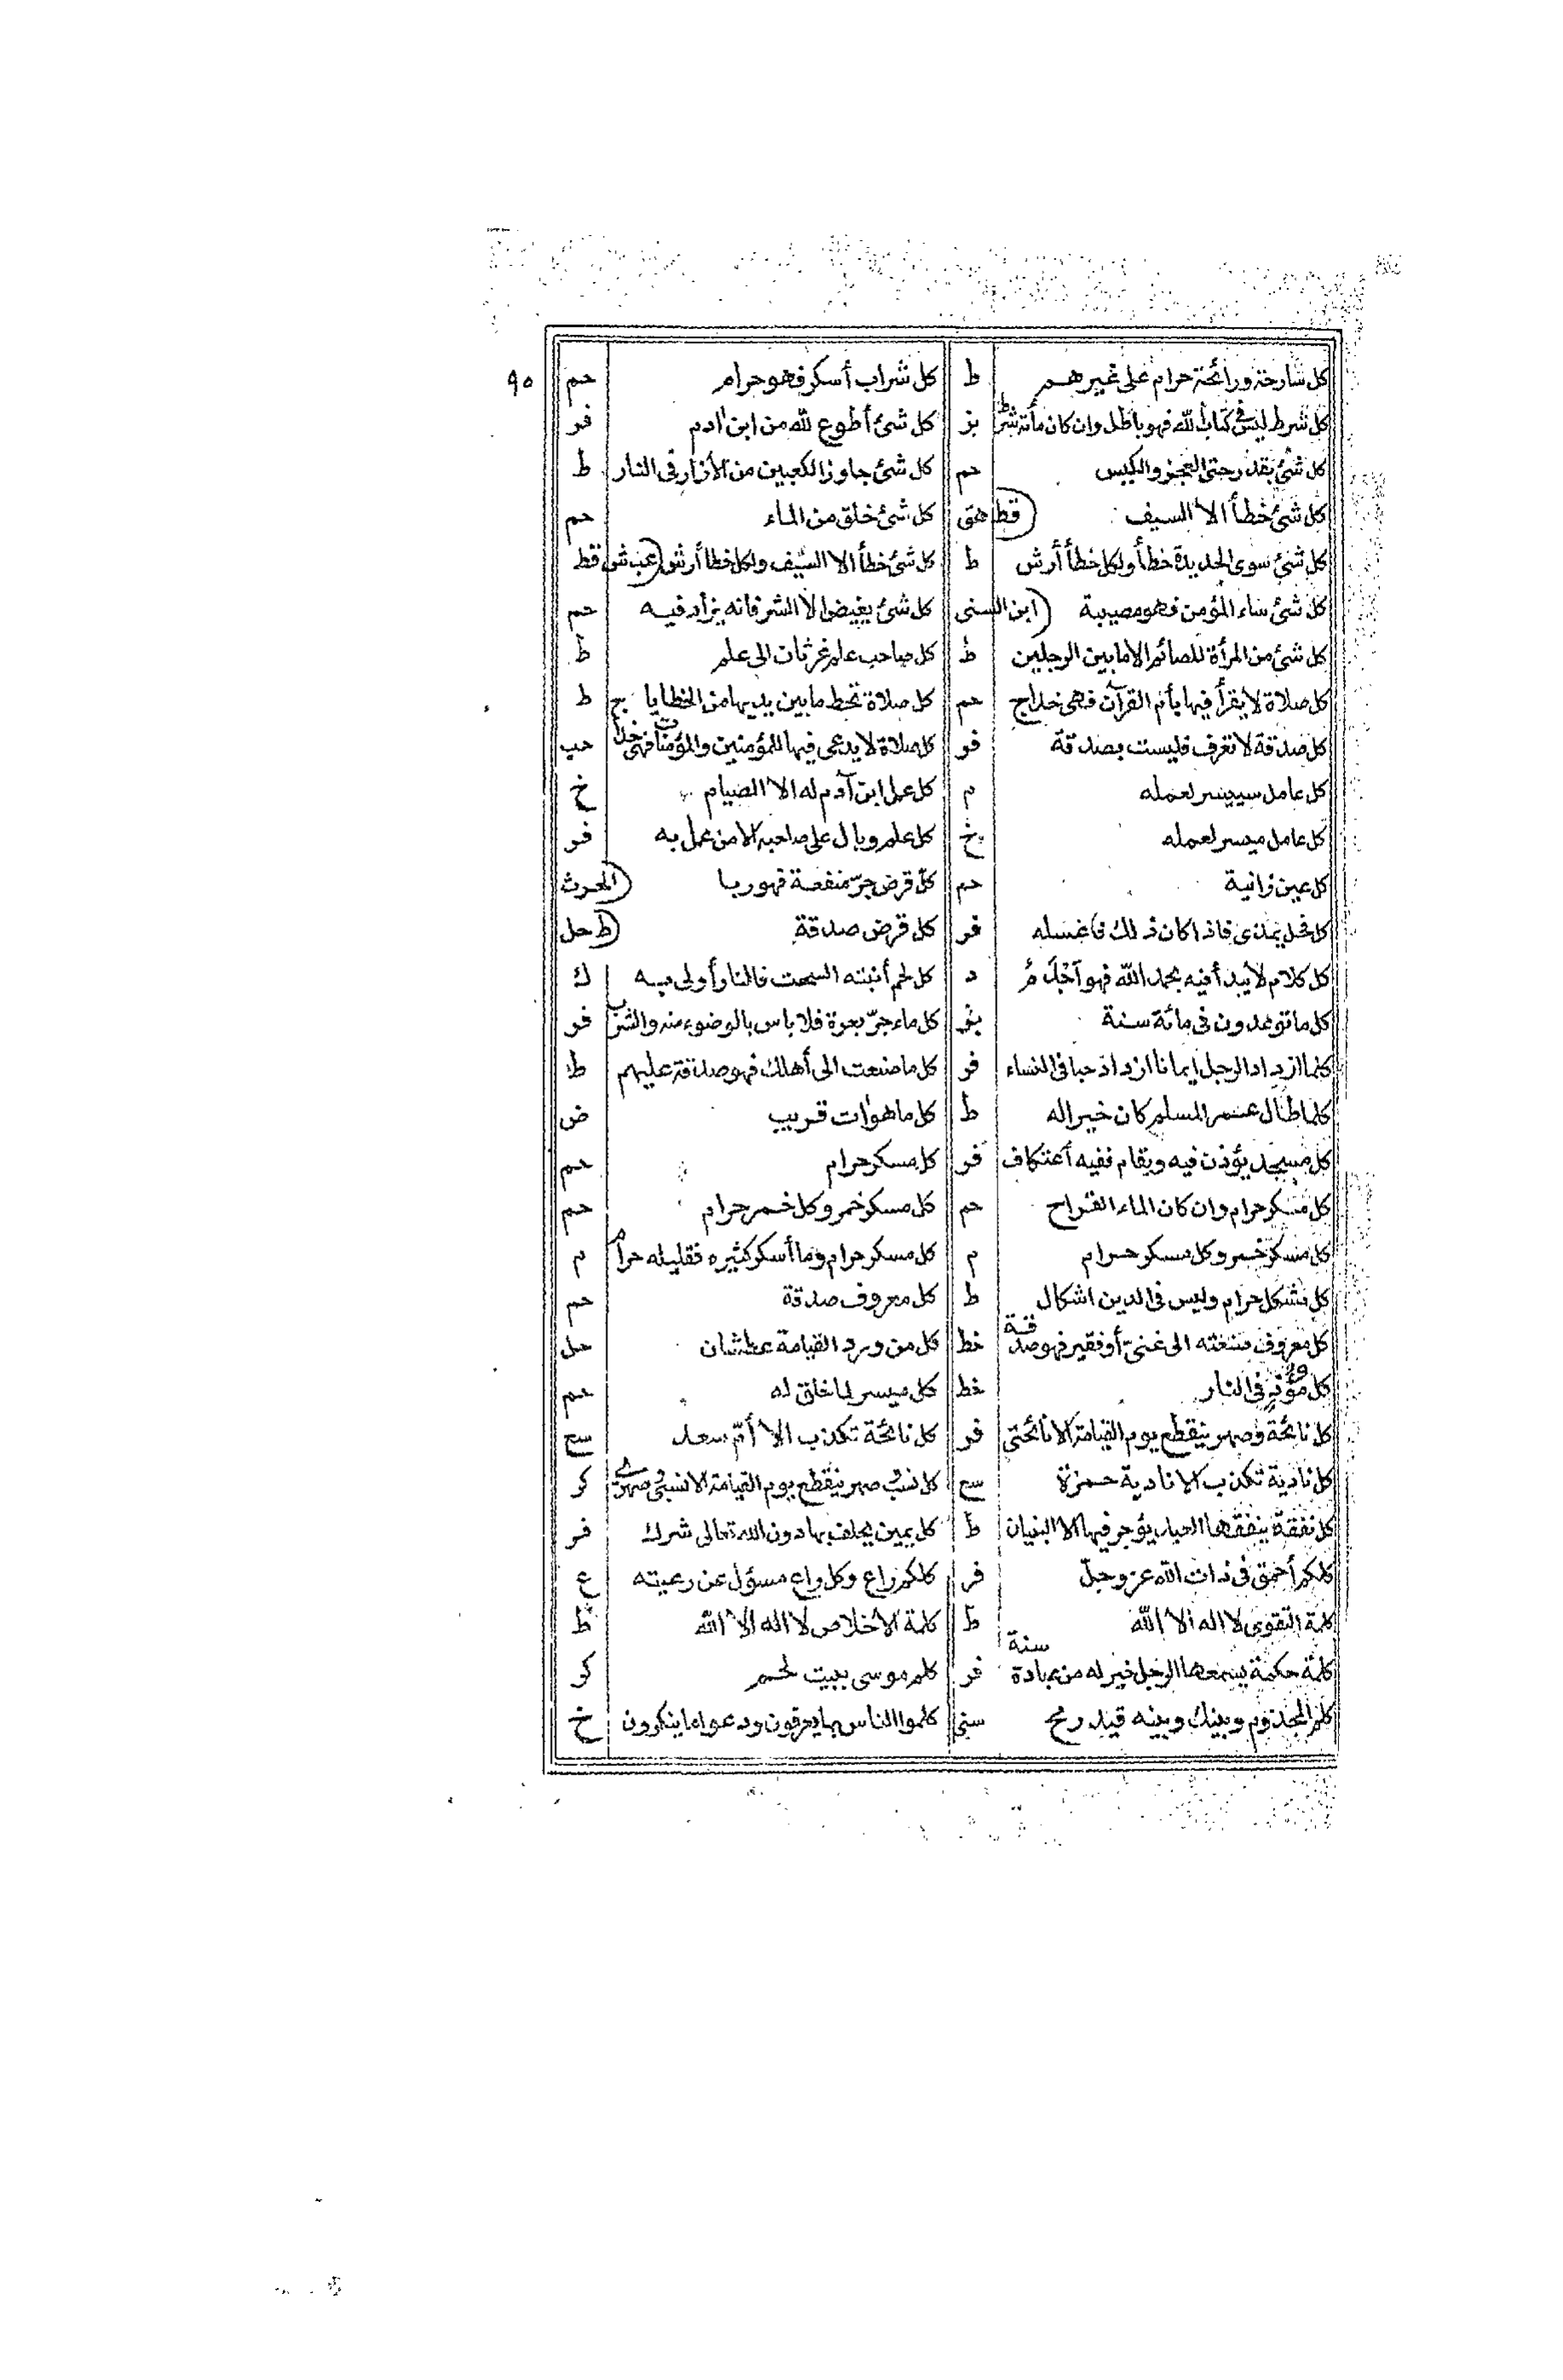 ٩٥
كل سارحة ورائحة حرام على غيرهم ط كل شراب أسكر فهو حرام حم
كل شرط ليس في كتاب الله فهو باطل وان كان مائة شرط بز كل شئ أطوع لله من ابن آدم فر
كل شئ بقدر حتى العجز والكيس حم كل شئ جاوز الكعبين من الازار في النار ط
كل شئ خطأ الا السيف (قط هق كل شئ خلق من الماء حم
كل شئ سوى الحديدة خطأ ولكل خطأ أرش ط كل شئ خطأ الا السيف ولكل خطأ أرش (عب ش قط
كل شئ ساء المؤمن فهو مصيبة (ابن السنى كل شئ يغيض الا الشر فانه يزاد فيه حم
كل شئ من المرأة للصائم الا ما بين الرجلين ط كل صاحب علم غرثان الى علم ط
كل صلاة لا يقرأ فيها بأم القرآن فهى خداج حم كل صلاة تحط ما بين يديها من الخطايا ج ط
كل صدقة لا تعرف فليست بصدقة فر كل صلاة لا يدعى فيها للمؤمنين والمؤمنات فهى خداج حب
كل عامل سييسر لعمله م كل عمل ابن آدم له الا الصيام خ
كل عامل ميسر لعمله خ كل علم وبال على صاحبه الا من عمل به فر
كل عين زانية حم كل قرض جرّ منفعة فهو ربا (الحرث
كل فحل يمذى فاذا كان ذلك فاغسله فر كل قرض صدقة (ط حل
كل كلام لا يبدأ فيه بحمد الله فهو أجذم د كل لحم أنبته السحت فالنار أولى به ك
كل ما توعدون في مائة سنة بز كل ماء جرّ بعرة فلا باس بالوضوء منه والشرب فر
كلما ازداد الرجل ايمانا ازداد حبا في النساء فر كل ما صنعت الى أهلك فهو صدقة عليهم ط
كلما طال عمر المسلم كان خيرا له ط كل ما هو آت قريب ض
كل مسجد يؤذن فيه ويقام ففيه أعتكاف فر كل مسكر حرام حم
كل مسكر حرام وان كان الماء القراح حم كل مسكر خمر وكل خمر حرام حم
كل مسكر خمر وكل مسكر حرام م كل مسكر حرام وما أسكر كثيره فقليله حرام م
كل مشكل حرام وليس في الدين اشكال ط كل معروف صدقة حم
كل معروف صنعته الى غنىّ أو فقير فهو صدقة خط كل من ورد القيامة عطشان حل
كل مؤذٍ في النار خط كل ميسر لما خلق له حم
كل نائحة وصهر ينقطع يوم القيامة الا نائحتى فر كل نائحة تكذب الا أمّ سعد سع
كل نادبة تكذب الا نادبة حمزة سع كل نسب وصهر ينقطع يوم القيامة الا نسبى وصهرى كر
كل نفقة ينفقها العبد يؤجر فيها الا البنيان ط كل يمين يحلف بها دون الله تعالى شرك فر
كلكم أحمق في ذات الله عز وجلّ فر كلكم راع وكل راع مسؤل عن رعيته ع
كلمة التقوى لا اله الا الله ط كلمة الاخلاص لا اله الا الله ط
كلمة حكمة يسمعها الرجل خير له من عبادة سنة فر كلم موسى ببيت لحم كر
كلم المجذوم وبينك وبينه قيد رمح سنى كلموا الناس بما يعرفون ودعوا ما ينكرون خ